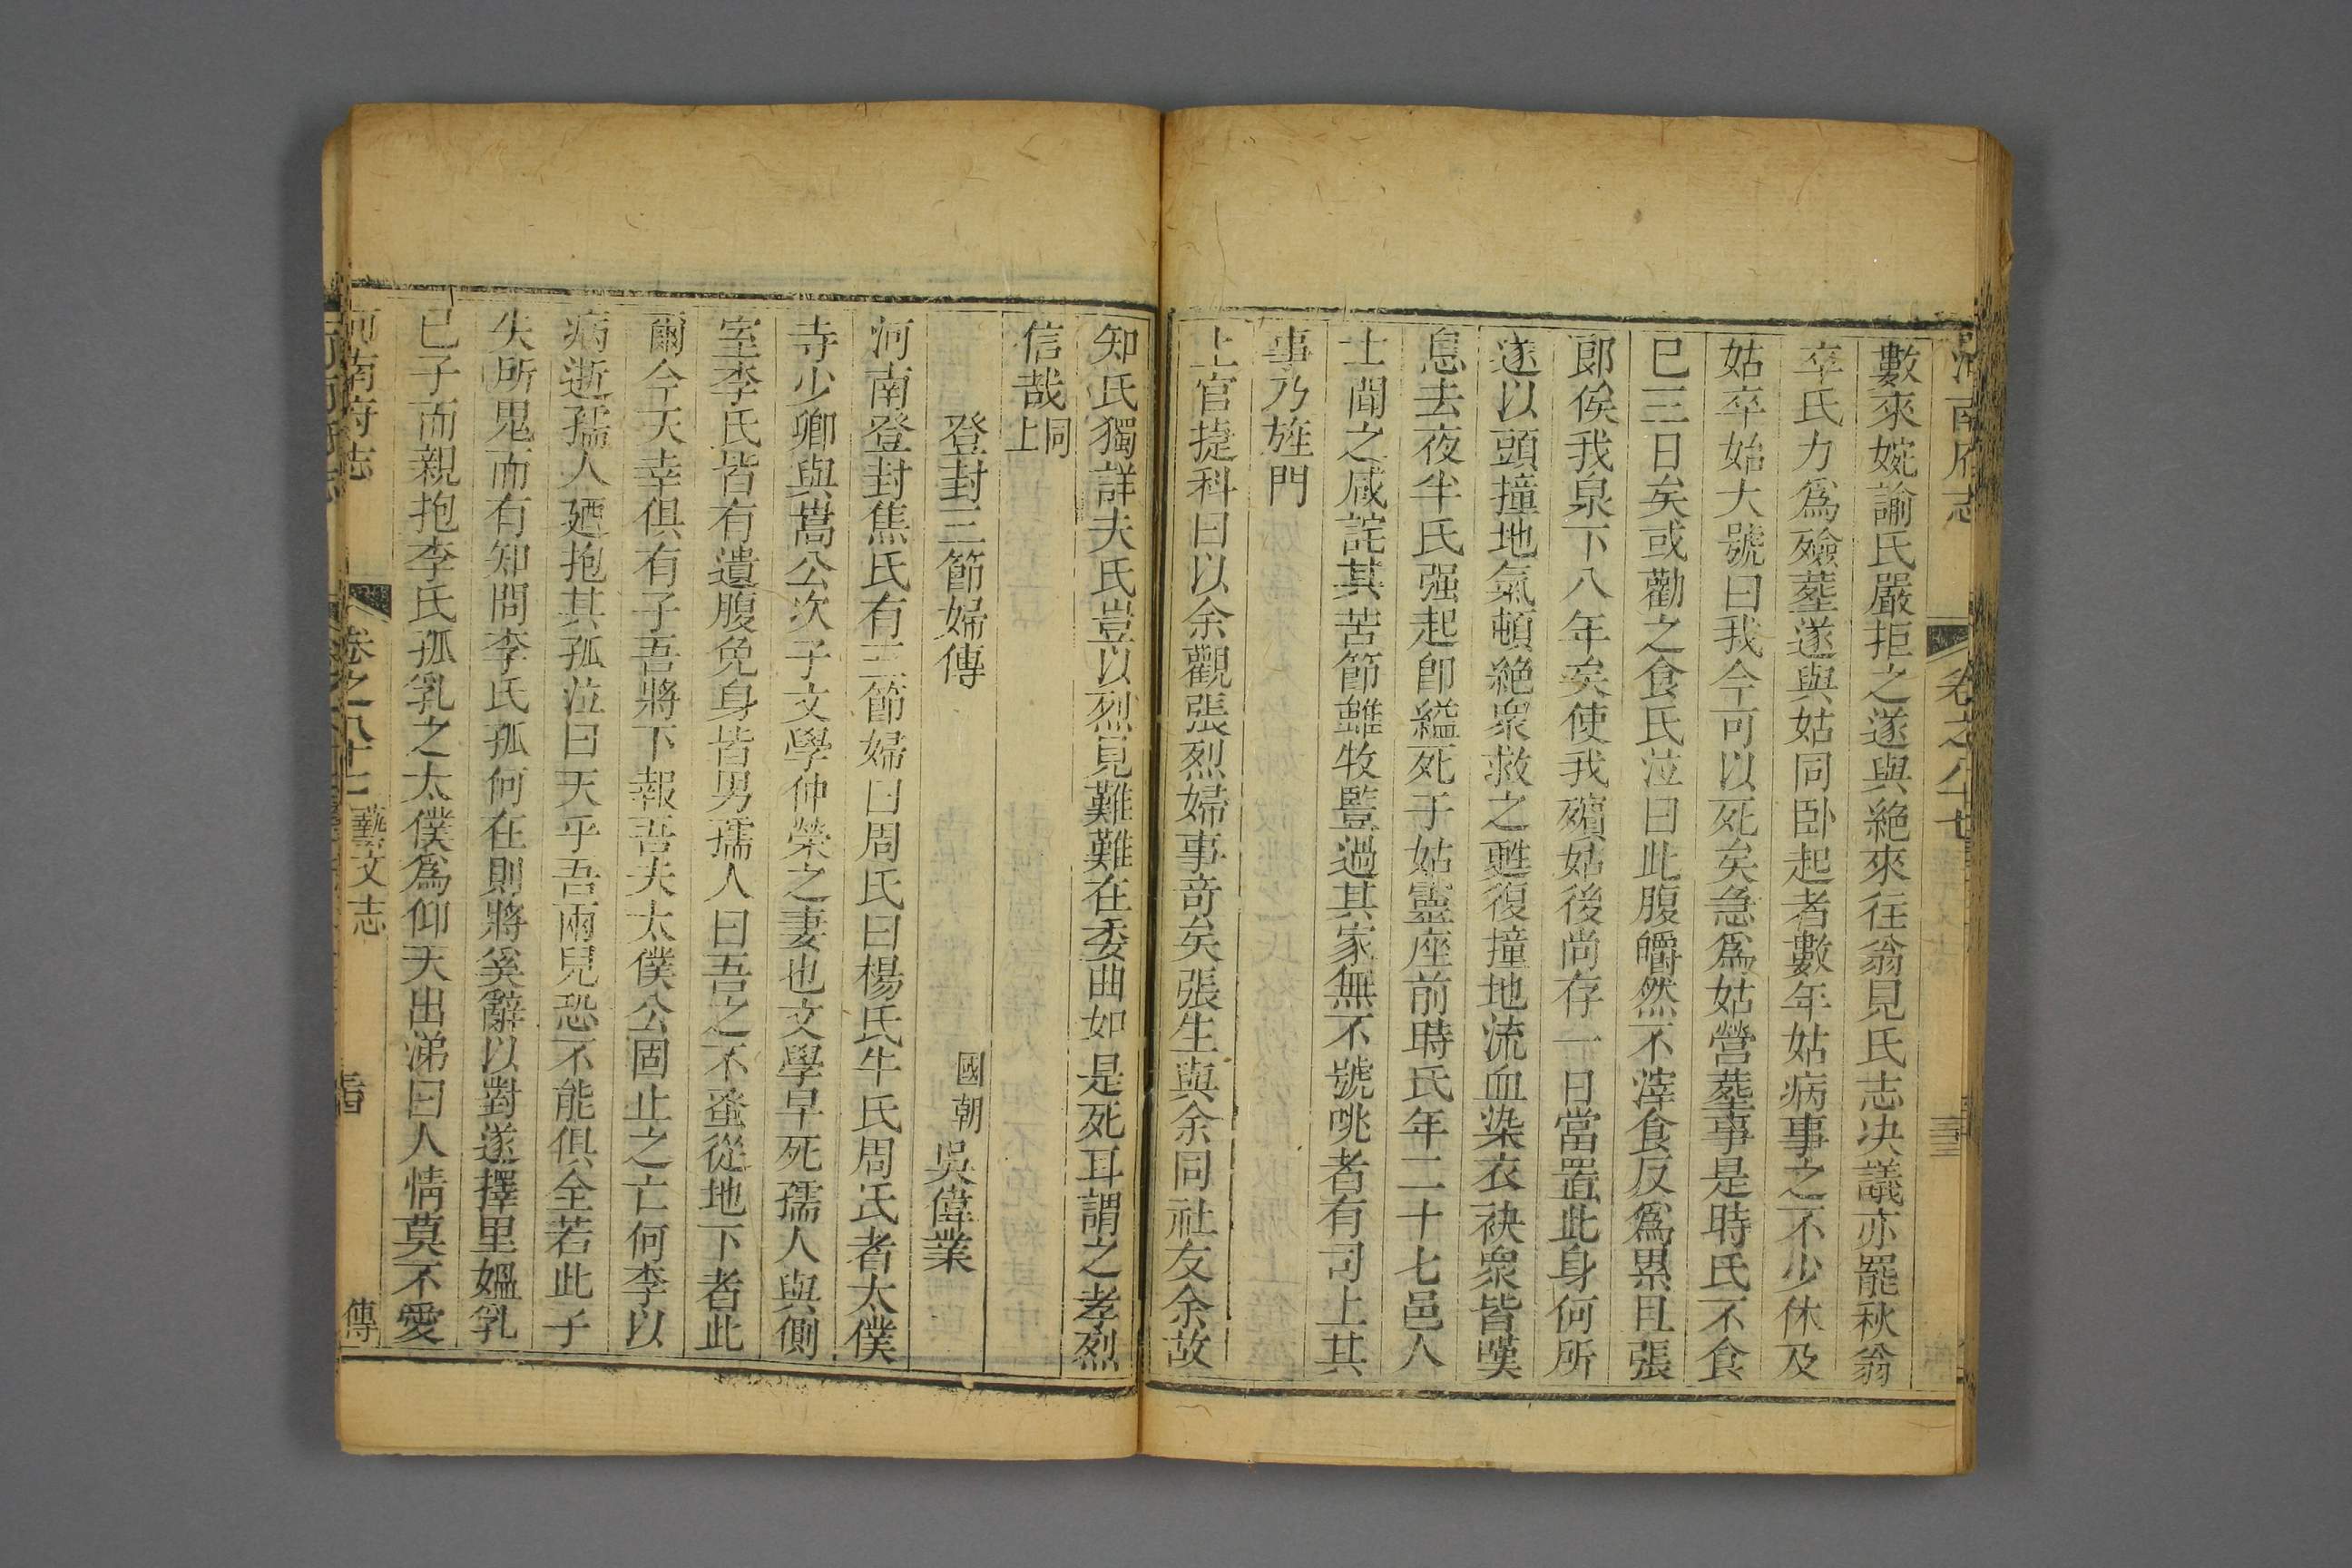 河南府志 卷之八十七
數來婉諭氏嚴拒之遂與絶來往翁見氏志决議亦罷秋翁
卒氏力爲殮塟遂與姑同卧起者數年姑病事之不少休及
姑卒始大號曰我今可以死矣急爲姑營塟事是時氏不食
巳三日矣或勸之食氏泣曰此腹皭然不滓食反爲累且張
郎俟我泉下八年矣使我殯姑後尚存一日當置此身何所
遂以頭撞地氣頓絶衆救之甦復撞地流血染衣袂衆皆嘆
息去夜半氏强起卽縊死于姑靈座前時氏年二十七邑人
士聞之咸詫其苦節雖牧豎過其家無不號咷者有司上其
事乃旌門
上官捷科曰以余觀張烈婦事竒矣張生與余同社友余故
知氏獨詳夫氏豈以烈見難難在委曲如是死耳謂之孝烈
信哉同上
登封三節婦傳 國朝吳偉業
河南登封焦氏有三節婦曰周氏曰楊氏牛氏周氏者太僕
寺少卿與嵩公次子文學仲榮之妻也文學早死孺人與側
室李氏皆有遺腹免身皆男孺人曰吾之不蚤從地下者此
爾今天幸俱有子吾將下報吾夫太僕公固止之亡何李以
病逝孺人廼抱其孤泣曰天乎吾兩兒恐不能俱全若此子
失所鬼而有知問李氏孤何在則將奚辭以對遂擇里媼乳
已子而親抱李氏孤乳之太僕爲仰天出涕曰人情莫不愛
河南府志 卷之八十七 藝文志 傳